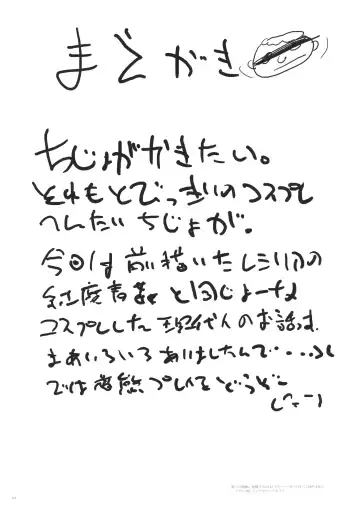 まえがき
ちじょがかきたい。
それもとびっきりのコスプレ
へんたいちじょが。
今回は前描いたレミリアの
純度青葉と同じよーな
コスプレした現代人のお話です
まあいろいろありましたんで・・・
では変態プレイをどうぞー